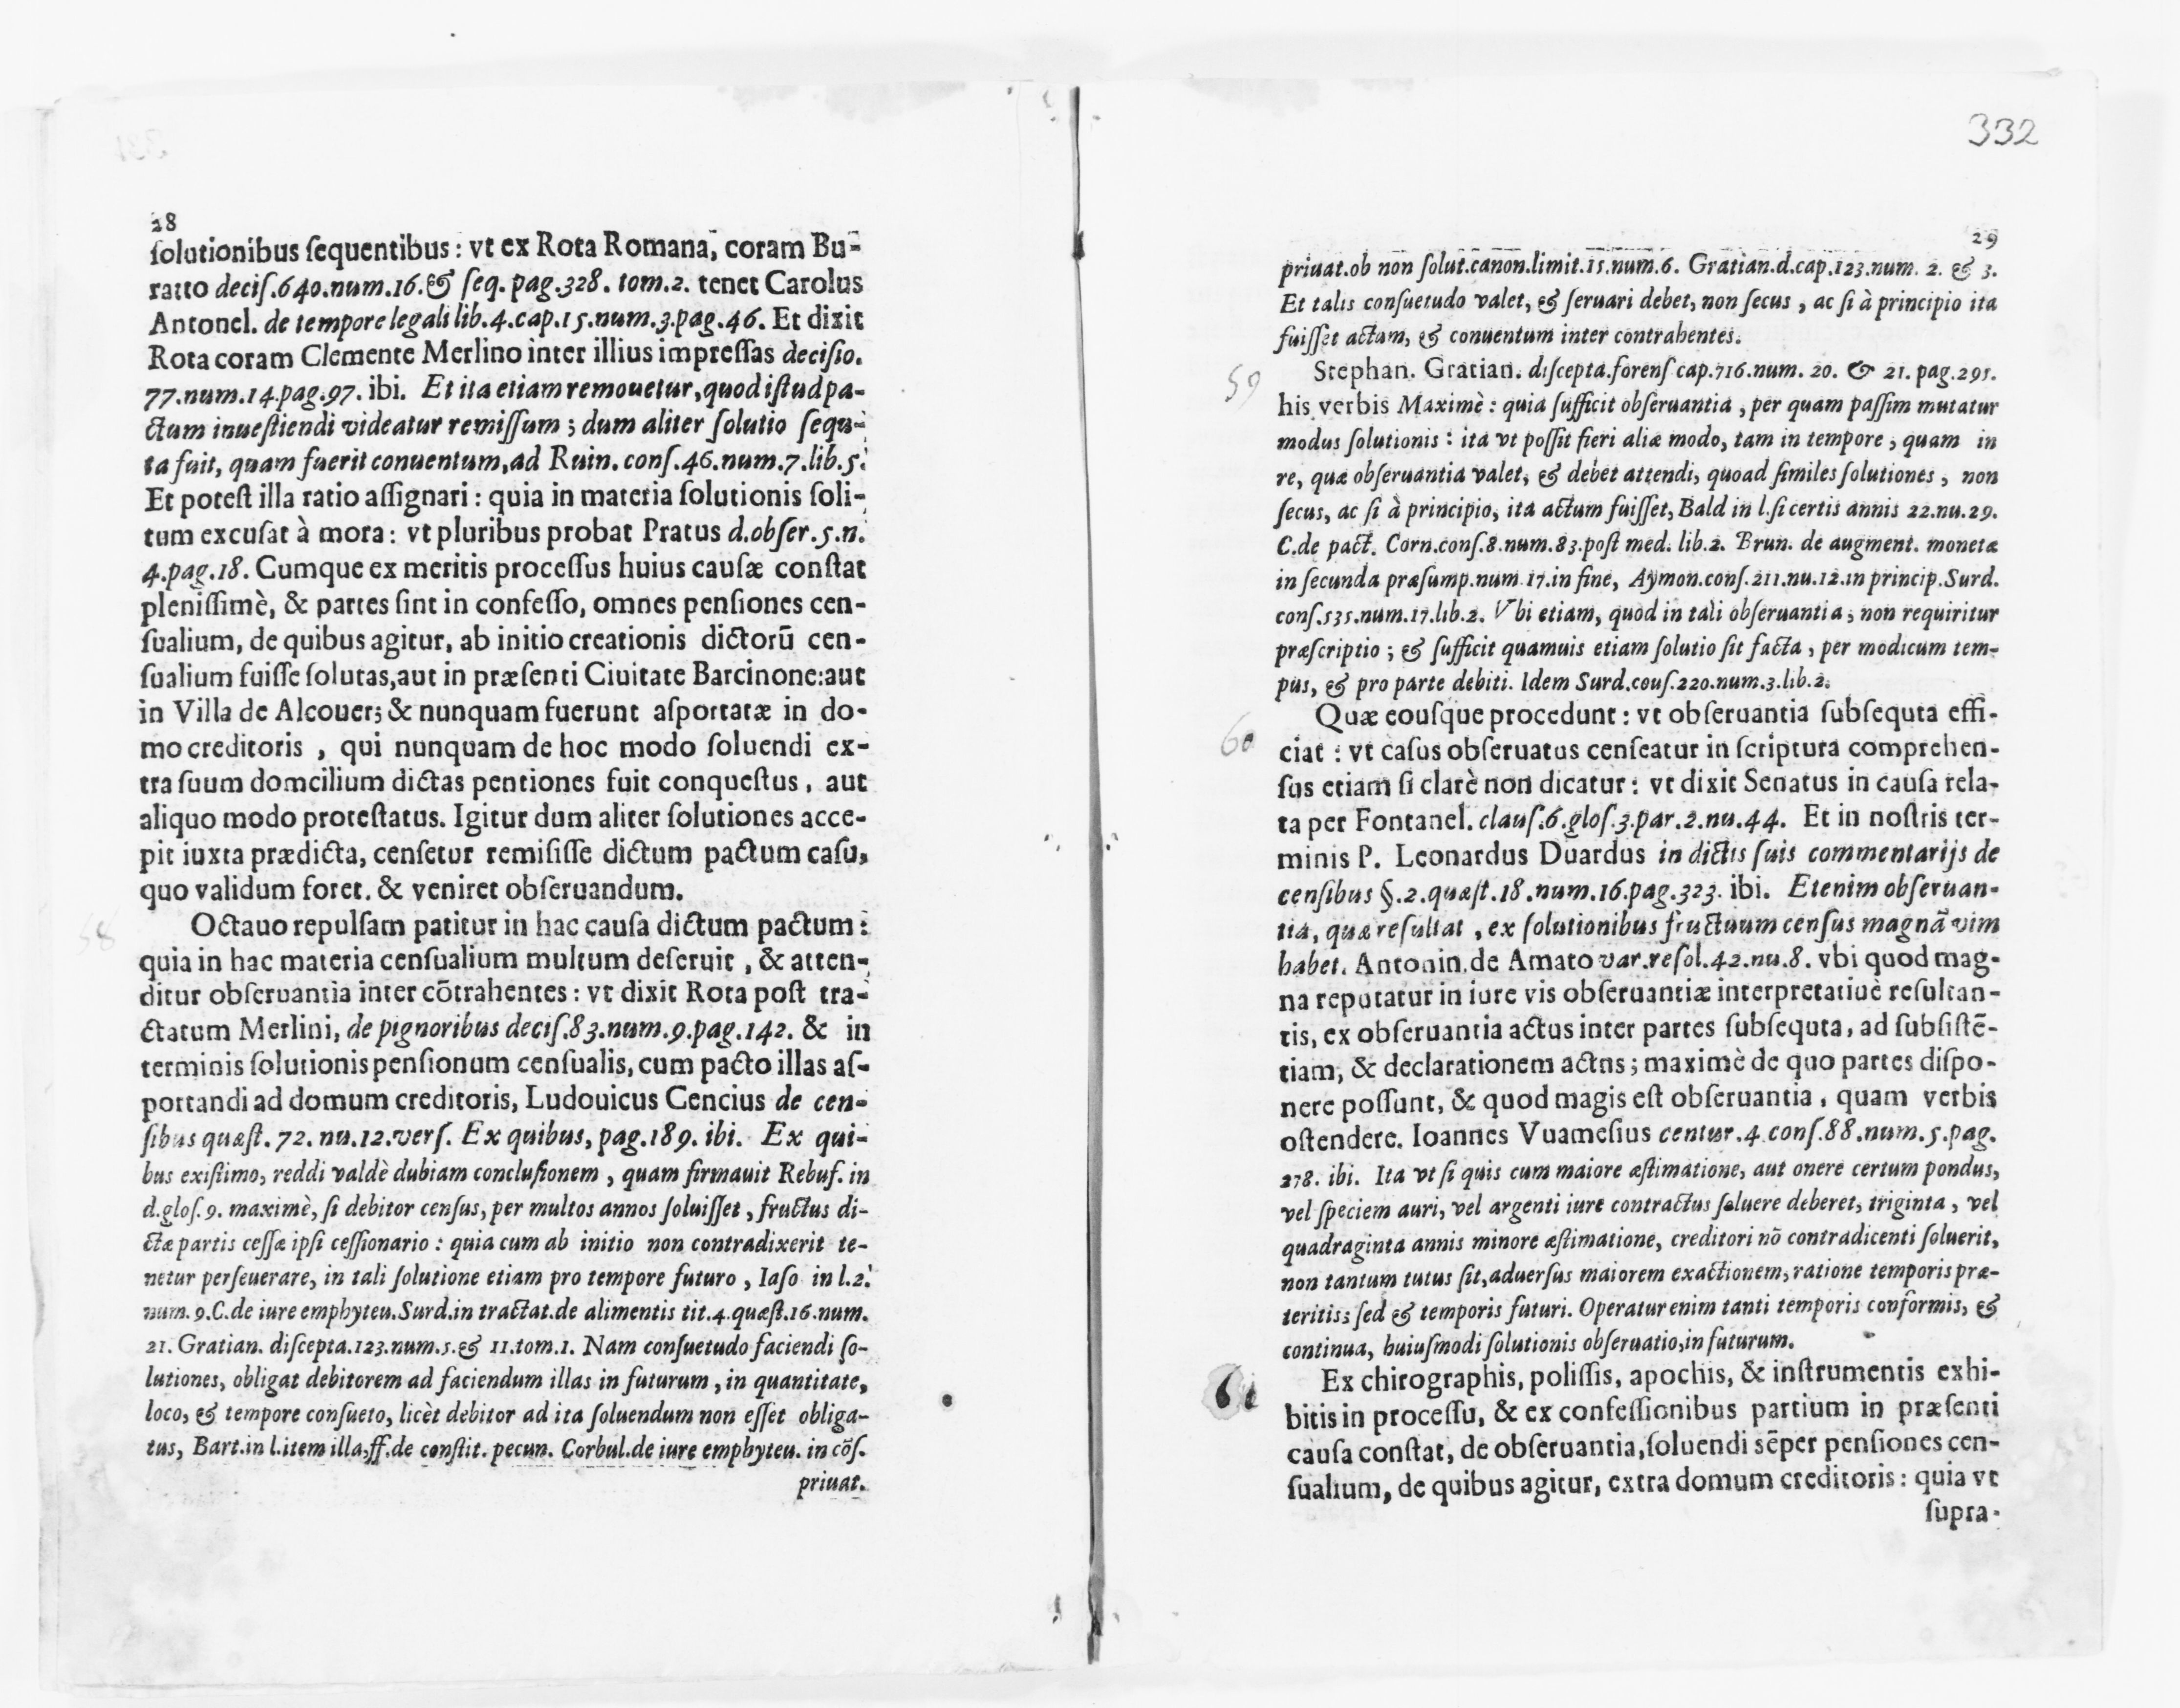 28
ſolutionibus ſequentibus: vt ex Rota Romana, coram Bu-
ratto deciſ.640.num.16.& ſeq. pag.328. tom.2. tenet Carolus
Antonel. de tempore legali lib.4.cap.15.num.3.pag.46. Et dixit
Rota coram Clemente Merlino inter illius impreſſas deciſio.
77.num.14.pag.97. ibi. Et ita etiam remouetur, quod iſtud pa-
ctum inueſtiendi videatur remiſſum; dum aliter ſolutio ſequ-
ta fuit, quam fuerit conuentum, ad Ruin. conſ.46.num.7.lib.5.
Et poteſt illa ratio aſſignari: quia in materia ſolutionis ſoli-
tum excuſat à mora: vt pluribus probat Pratus d.obſer.5.n.
4.pag.18. Cumque ex meritis proceſſus huius cauſæ conſtat
pleniſſimè, & partes ſint in confeſſo, omnes penſiones cen-
ſualium, de quibus agitur, ab initio creationis dictorū cen-
ſualium fuiſſe ſolutas, aut in præſenti Ciuitate Barcinone: aut
in Villa de Alcouer; & nunquam fuerunt aſportatæ in do-
mo creditoris, qui nunquam de hoc modo ſoluendi ex-
tra ſuum domcilium dictas pentiones fuit conqueſtus, aut
aliquo modo proteſtatus. Igitur dum aliter ſolutiones acce-
pit iuxta prædicta, cenſetur remiſiſſe dictum pactum caſu,
quo validum foret. & veniret obſeruandum.
58 Octauo repulſam patitur in hac cauſa dictum pactum:
quia in hac materia cenſualium multum deſeruit, & atten-
ditur obſeruantia inter cōtrahentes: vt dixit Rota poſt tra-
ctatum Merlini, de pignoribus deciſ.83.num.9.pag.142. & in
terminis ſolutionis penſionum cenſualis, cum pacto illas aſ-
portandi ad domum creditoris, Ludouicus Cencius de cen-
ſibus quæſt.72. nu.12.verſ. Ex quibus, pag.189. ibi. Ex qui-
bus exiſtimo, reddi valdè dubiam concluſionem, quam firmauit Rebuf. in
d.gloſ.9. maximè, ſi debitor cenſus, per multos annos ſoluiſſet, fructus di-
ctæ partis ceſſæ ipſi ceſſionario: quia cum ab initio non contradixerit te-
netur perſeuerare, in tali ſolutione etiam pro tempore futuro, Iaſo in l.2.
num.9.C.de iure emphyteu.Surd.in tractat.de alimentis tit.4.quæſt.16.num.
21. Gratian. diſcepta.123.num.5.& 11.tom.1. Nam conſuetudo faciendi ſo-
lutiones, obligat debitorem ad faciendum illas in futurum, in quantitate,
loco, & tempore conſueto, licèt debitor ad ita ſoluendum non eſſet obliga-
tus, Bart.in l.item illa,ff.de conſtit. pecun. Corbul.de iure emphyteu. in cōſ.
priuat.
332
29
priuat.ob non ſolut.canon.limit.15.num.6. Gratian.d.cap.123.num. 2. & 3.
Et talis conſuetudo valet, & ſeruari debet, non ſecus, ac ſi à principio ita
fuiſſet actam, & conuentum inter contrahentes.
59 Stephan. Gratian. diſcepta.forenſ cap.716.num. 20. & 21. pag.291.
his verbis Maximè: quia ſufficit obſeruantia, per quam paſſim mutatur
modus ſolutionis: ita vt poſſit fieri aliæ modo, tam in tempore, quam in
re, quæ obſeruantia valet, & debet attendi, quoad ſimiles ſolutiones, non
ſecus, ac ſi à principio, ita actum fuiſſet, Bald in l.ſi certis annis 22.nu.29.
C.de pact. Corn.conſ.8.num.83.poſt med. lib.2. Brun. de augment. monetæ
in ſecunda præſump.num 17.in fine, Aymon.conſ.211.nu.12.in princip.Surd.
conſ.535.num.17.lib.2. Vbi etiam, quod in tali obſeruantia, non requiritur
præſcriptio; & ſufficit quamuis etiam ſolutio ſit facta, per modicum tem-
pus, & pro parte debiti. Idem Surd.couſ.220.num.3.lib.2.
60 Quæ eouſque procedunt: vt obſeruantia ſubſequta effi-
ciat: vt caſus obſeruatus cenſeatur in ſcriptura comprehen-
ſus etiam ſi clarè non dicatur: vt dixit Senatus in cauſa rela-
ta per Fontanel. clauſ.6.gloſ.3.par.2.nu.44. Et in noſtris ter-
minis P. Leonardus Duardus in dictis ſuis commentarijs de
cenſibus §.2.quæſt.18.num.16.pag.323. ibi. Etenim obſeruan-
tia, quæ reſultat, ex ſolutionibus fructuum cenſus magnā vim
habet. Antonin. de Amato var.reſol.42.nu.8. vbi quod mag-
na reputatur in iure vis obſeruantiæ interpretatiuè reſultan-
tis, ex obſeruantia actus inter partes ſubſequta, ad ſubſiſtē-
tiam, & declarationem actns; maximè de quo partes diſpo-
nere poſſunt, & quod magis eſt obſeruantia, quam verbis
oſtendere. Ioannes Vuameſius centur.4.conſ.88.num.5.pag.
278. ibi. Ita vt ſi quis cum maiore æſtimatione, aut onere certum pondus,
vel ſpeciem auri, vel argenti iure contractus ſoluere deberet, triginta, vel
quadraginta annis minore æſtimatione, creditori nō contradicenti ſoluerit,
non tantum tutus ſit, aduerſus maiorem exactionem, ratione temporis præ-
teritis; ſed & temporis futuri. Operatur enim tanti temporis conformis, &
continua, huiuſmodi ſolutionis obſeruatio, in futurum.
61 Ex chirographis, poliſſis, apochis, & inſtrumentis exhi-
bitis in proceſſu, & ex confeſſionibus partium in præſenti
cauſa conſtat, de obſeruantia, ſoluendi sēper penſiones cen-
ſualium, de quibus agitur, extra domum creditoris: quia vt
ſupra-